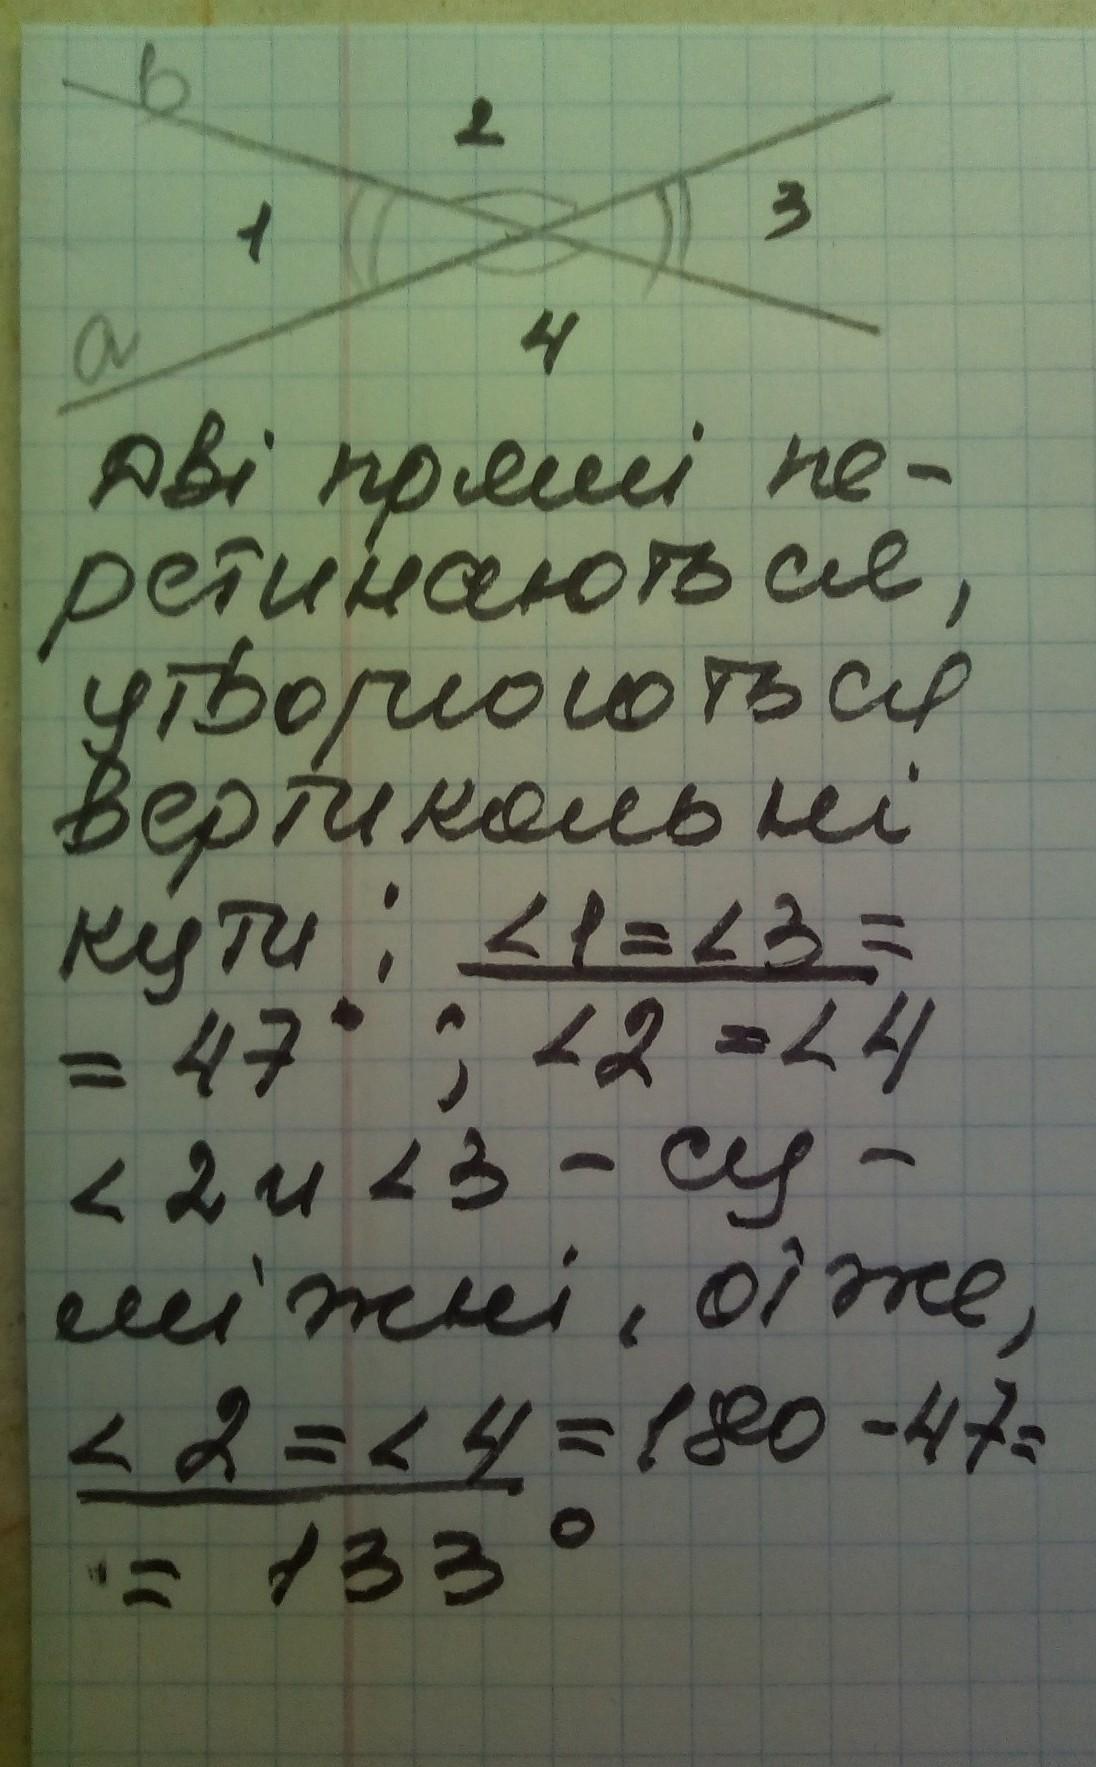 b
2
1
3
a
4
Дві прямі пе-
ретинаються,
утворюються
вертикальні
кути; <1=<3=
= 47°; <2 = <4
<2 и <3 - су-
міжні, отже,
<2 = <4 = 180 - 47=
= 133°